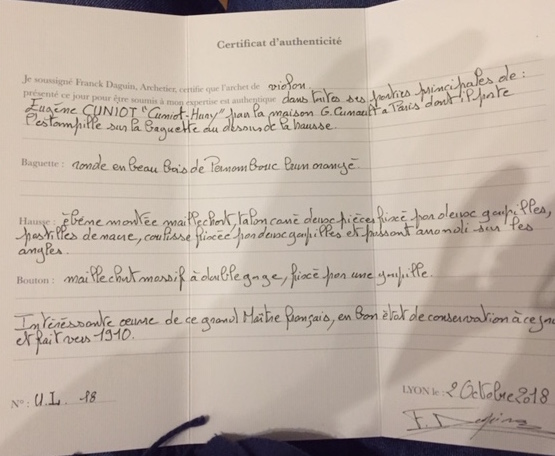 Certificat d'authenticité
Je soussigné Franck Daguin, Archetier, certifie que l'archet de violon
présenté ce jour pour être soumis à mon expertise est authentique dans toutes ses parties principales de :
Eugène CUNIOT "Cuniot-Hury" pour la maison G. à Paris dont il porte
l'estampille sur la baguette au dessous de la hausse.
Baguette : ronde en beau bois de Pernambouc brun orangé.
Hausse : ébène montée maillechort, talon carré deux pièces fixé par deux goupilles,
pastilles de nacre, coulisse fixée par deux goupilles et passant arrondi sur les
angles.
Bouton : maillechort massif à double gorge, fixé par une goupille.
Intéressante œuvre de ce grand Maître français, en bon état de conservation à ce jour
et fait vers 1910.
N° : U.I. 18
LYON le : 2 Octobre 2018